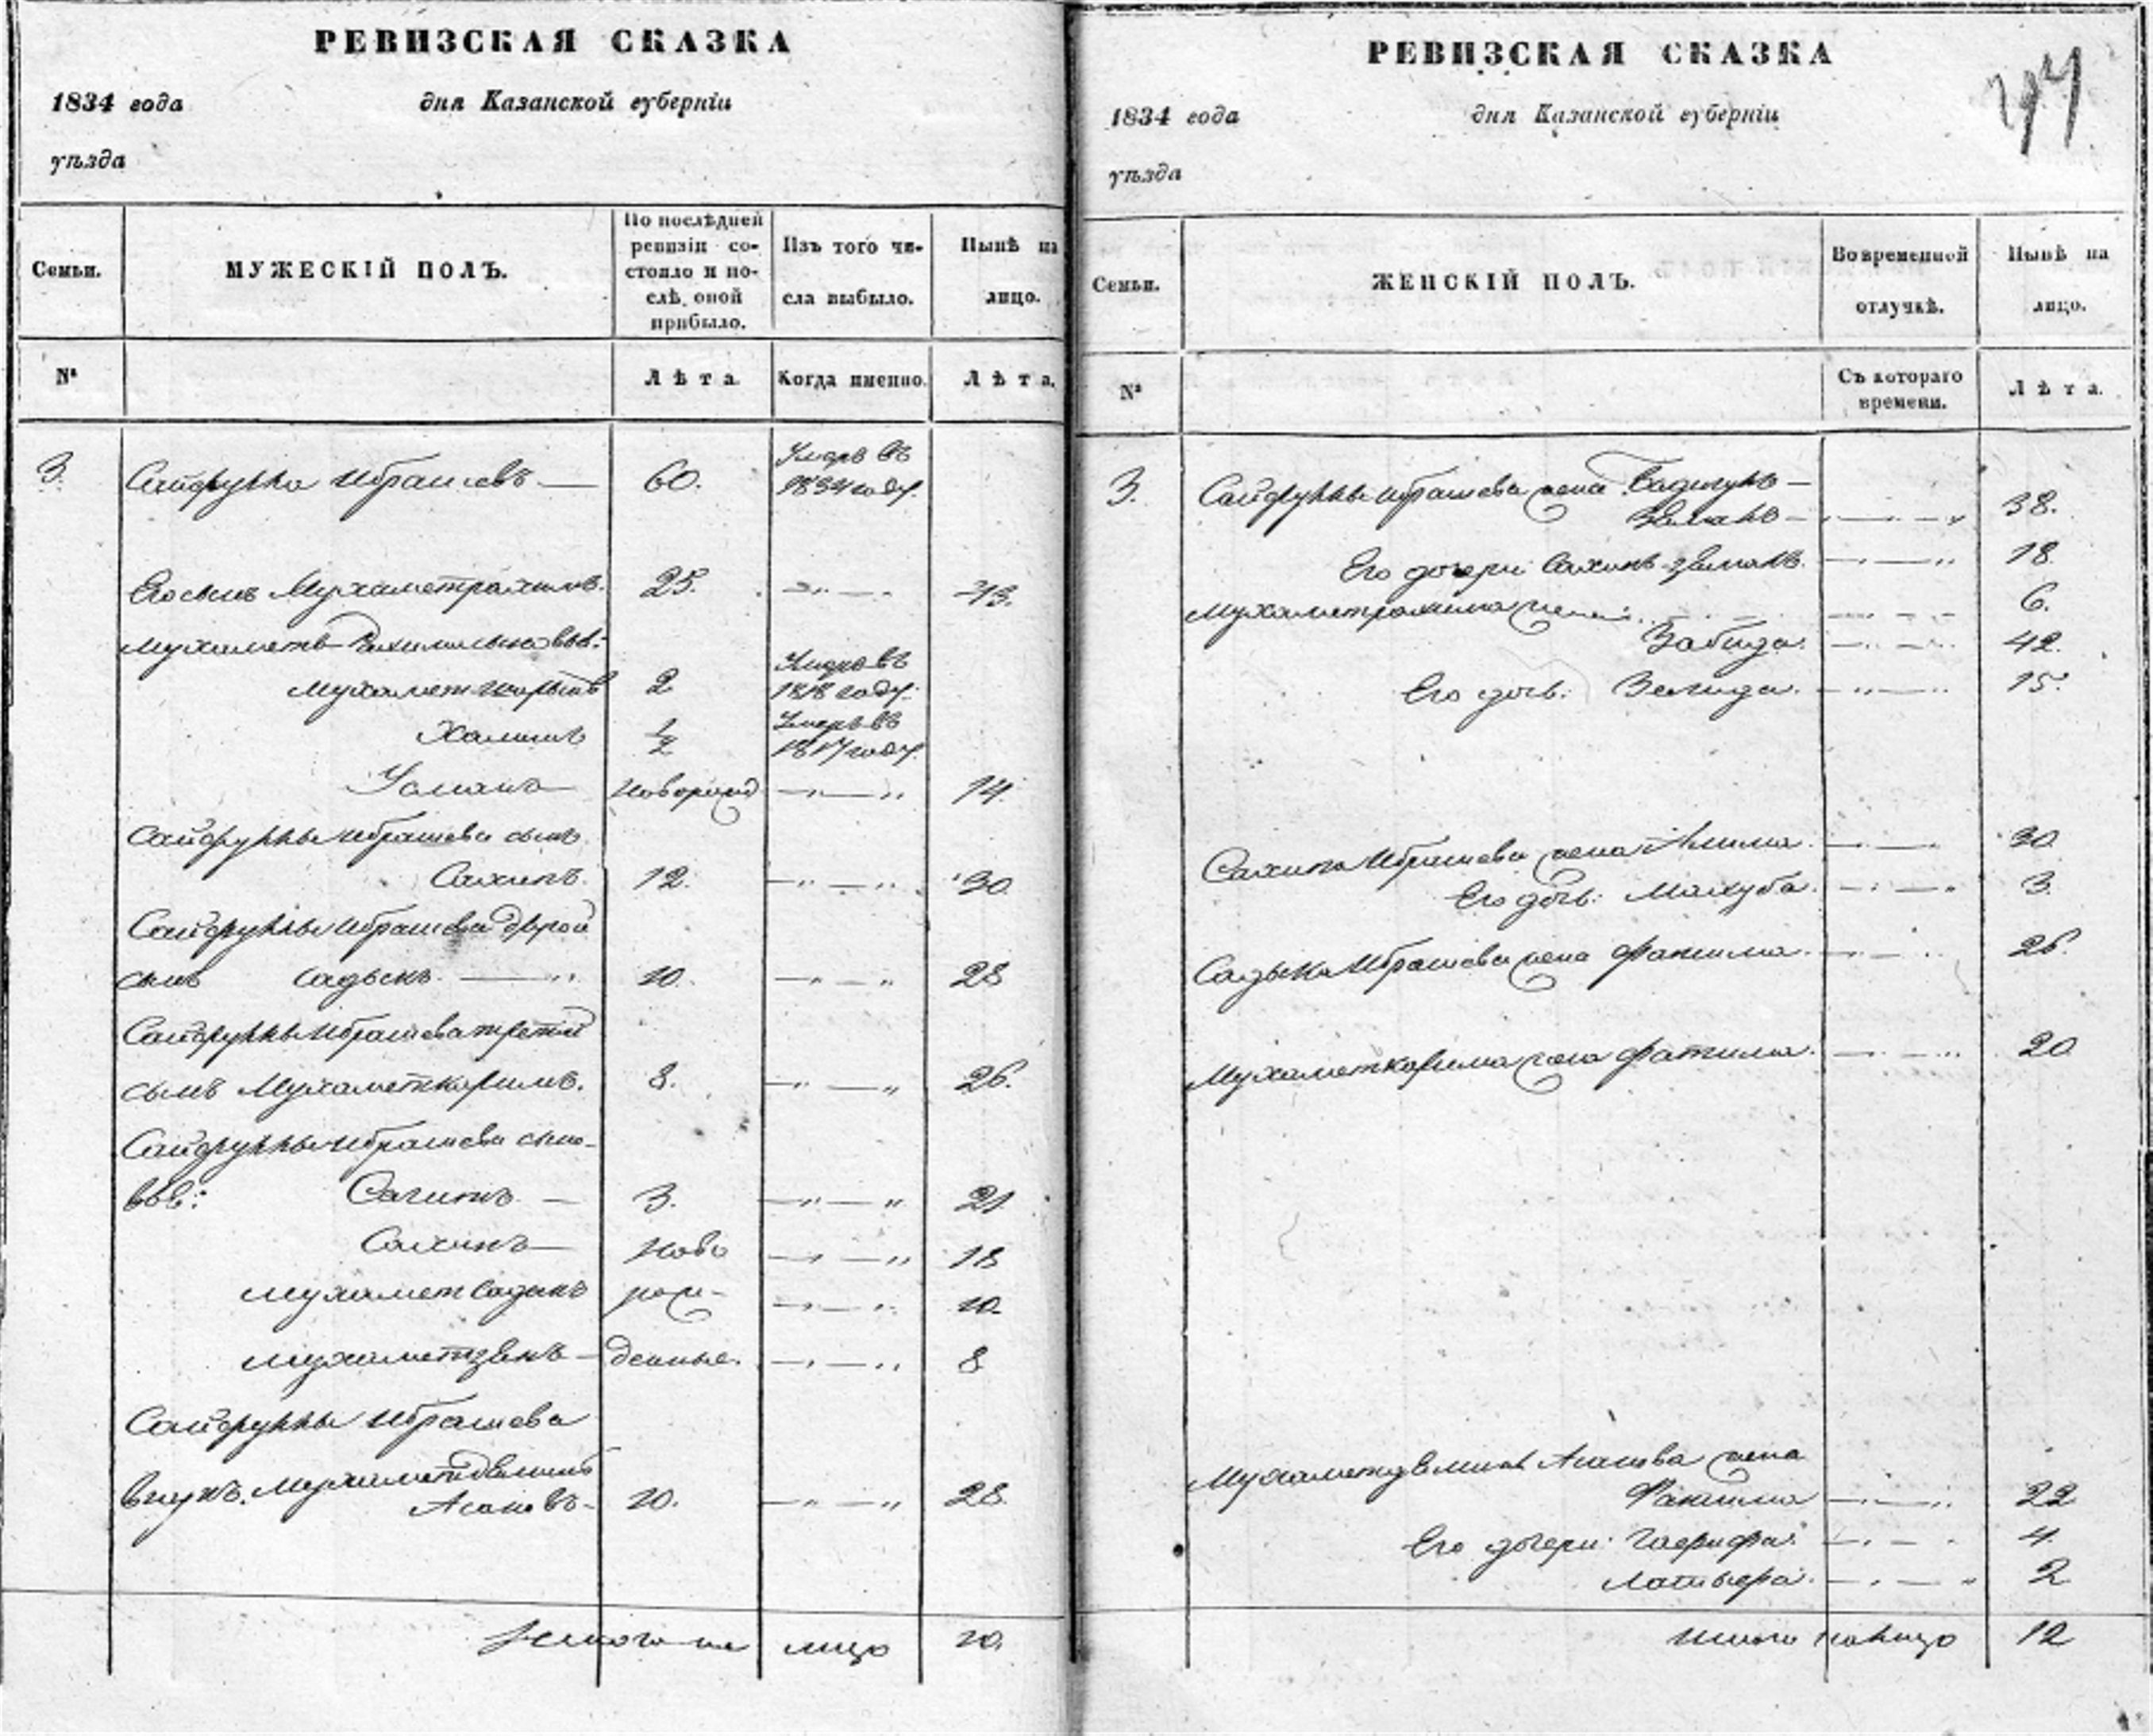 РЕВИЗСКАЯ СКАЗКА
1834 года дня Казанской губерніи
уѣзда
Семьи.
МУЖЕСКІЙ ПОЛЪ.
По послѣдней
ревизіи со-
стояло и по-
слѣ оной
прибыло.
Изъ того чи-
сла выбыло.
Нынѣ на
лицо.
№
Лѣта.
Когда именно.
Лѣта.
3. Сайфукка Ибрашевъ — 60. Умеръ въ
1834 году.
Его сынъ Мухаметрахимъ. 25. 43.
Мухаметъ Рахима сыновья:
Мухамет 2 Умеръ въ
1818 году.
Халитъ ½ Умеръ въ
1817 году.
Усманъ новорожд 14.
Сайфуккы Ибрашева сынъ
Сахипъ. 12. 30
Сайфуккы Ибрашева другой
сынъ Садыкъ. 10. 28
Сайфуккы Ибрашева третій
сынъ Мухаметкаримъ. 8. 26.
Сайфуккы Ибрашева сыно-
вья: 3. 21
Сахипъ ново 18
Мухамет Садыкъ рож- 10.
Мухаметзянъ денные. 8
Сайфуккы Ибрашева
внукъ. Мухамет
Асановъ 10. 28.
на лицо 10.
РЕВИЗСКАЯ СКАЗКА
1834 года дня Казанской губерніи
уѣзда
Семьи.
ЖЕНСКІЙ ПОЛЪ.
Во временной
отлучкѣ.
Нынѣ на
лицо.
№
Съ котораго
времени.
Лѣта.
3. Сайфуккы Ибрашева жена
Земанъ 38.
Его дочери 18.
6.
Мухаметрахима жена:
Забида. 42.
Его дочь: Зелида. 15.
Сахипа Ибрашева жена Алима. 30.
Его дочь: Махуба. 3.
Садыка Ибрашева жена Фатима. 26.
Мухаметкарима жена Фатима. 20
Асанова жена
Фатима 22
Его дочери: 4.
2
Итого на лицо 12